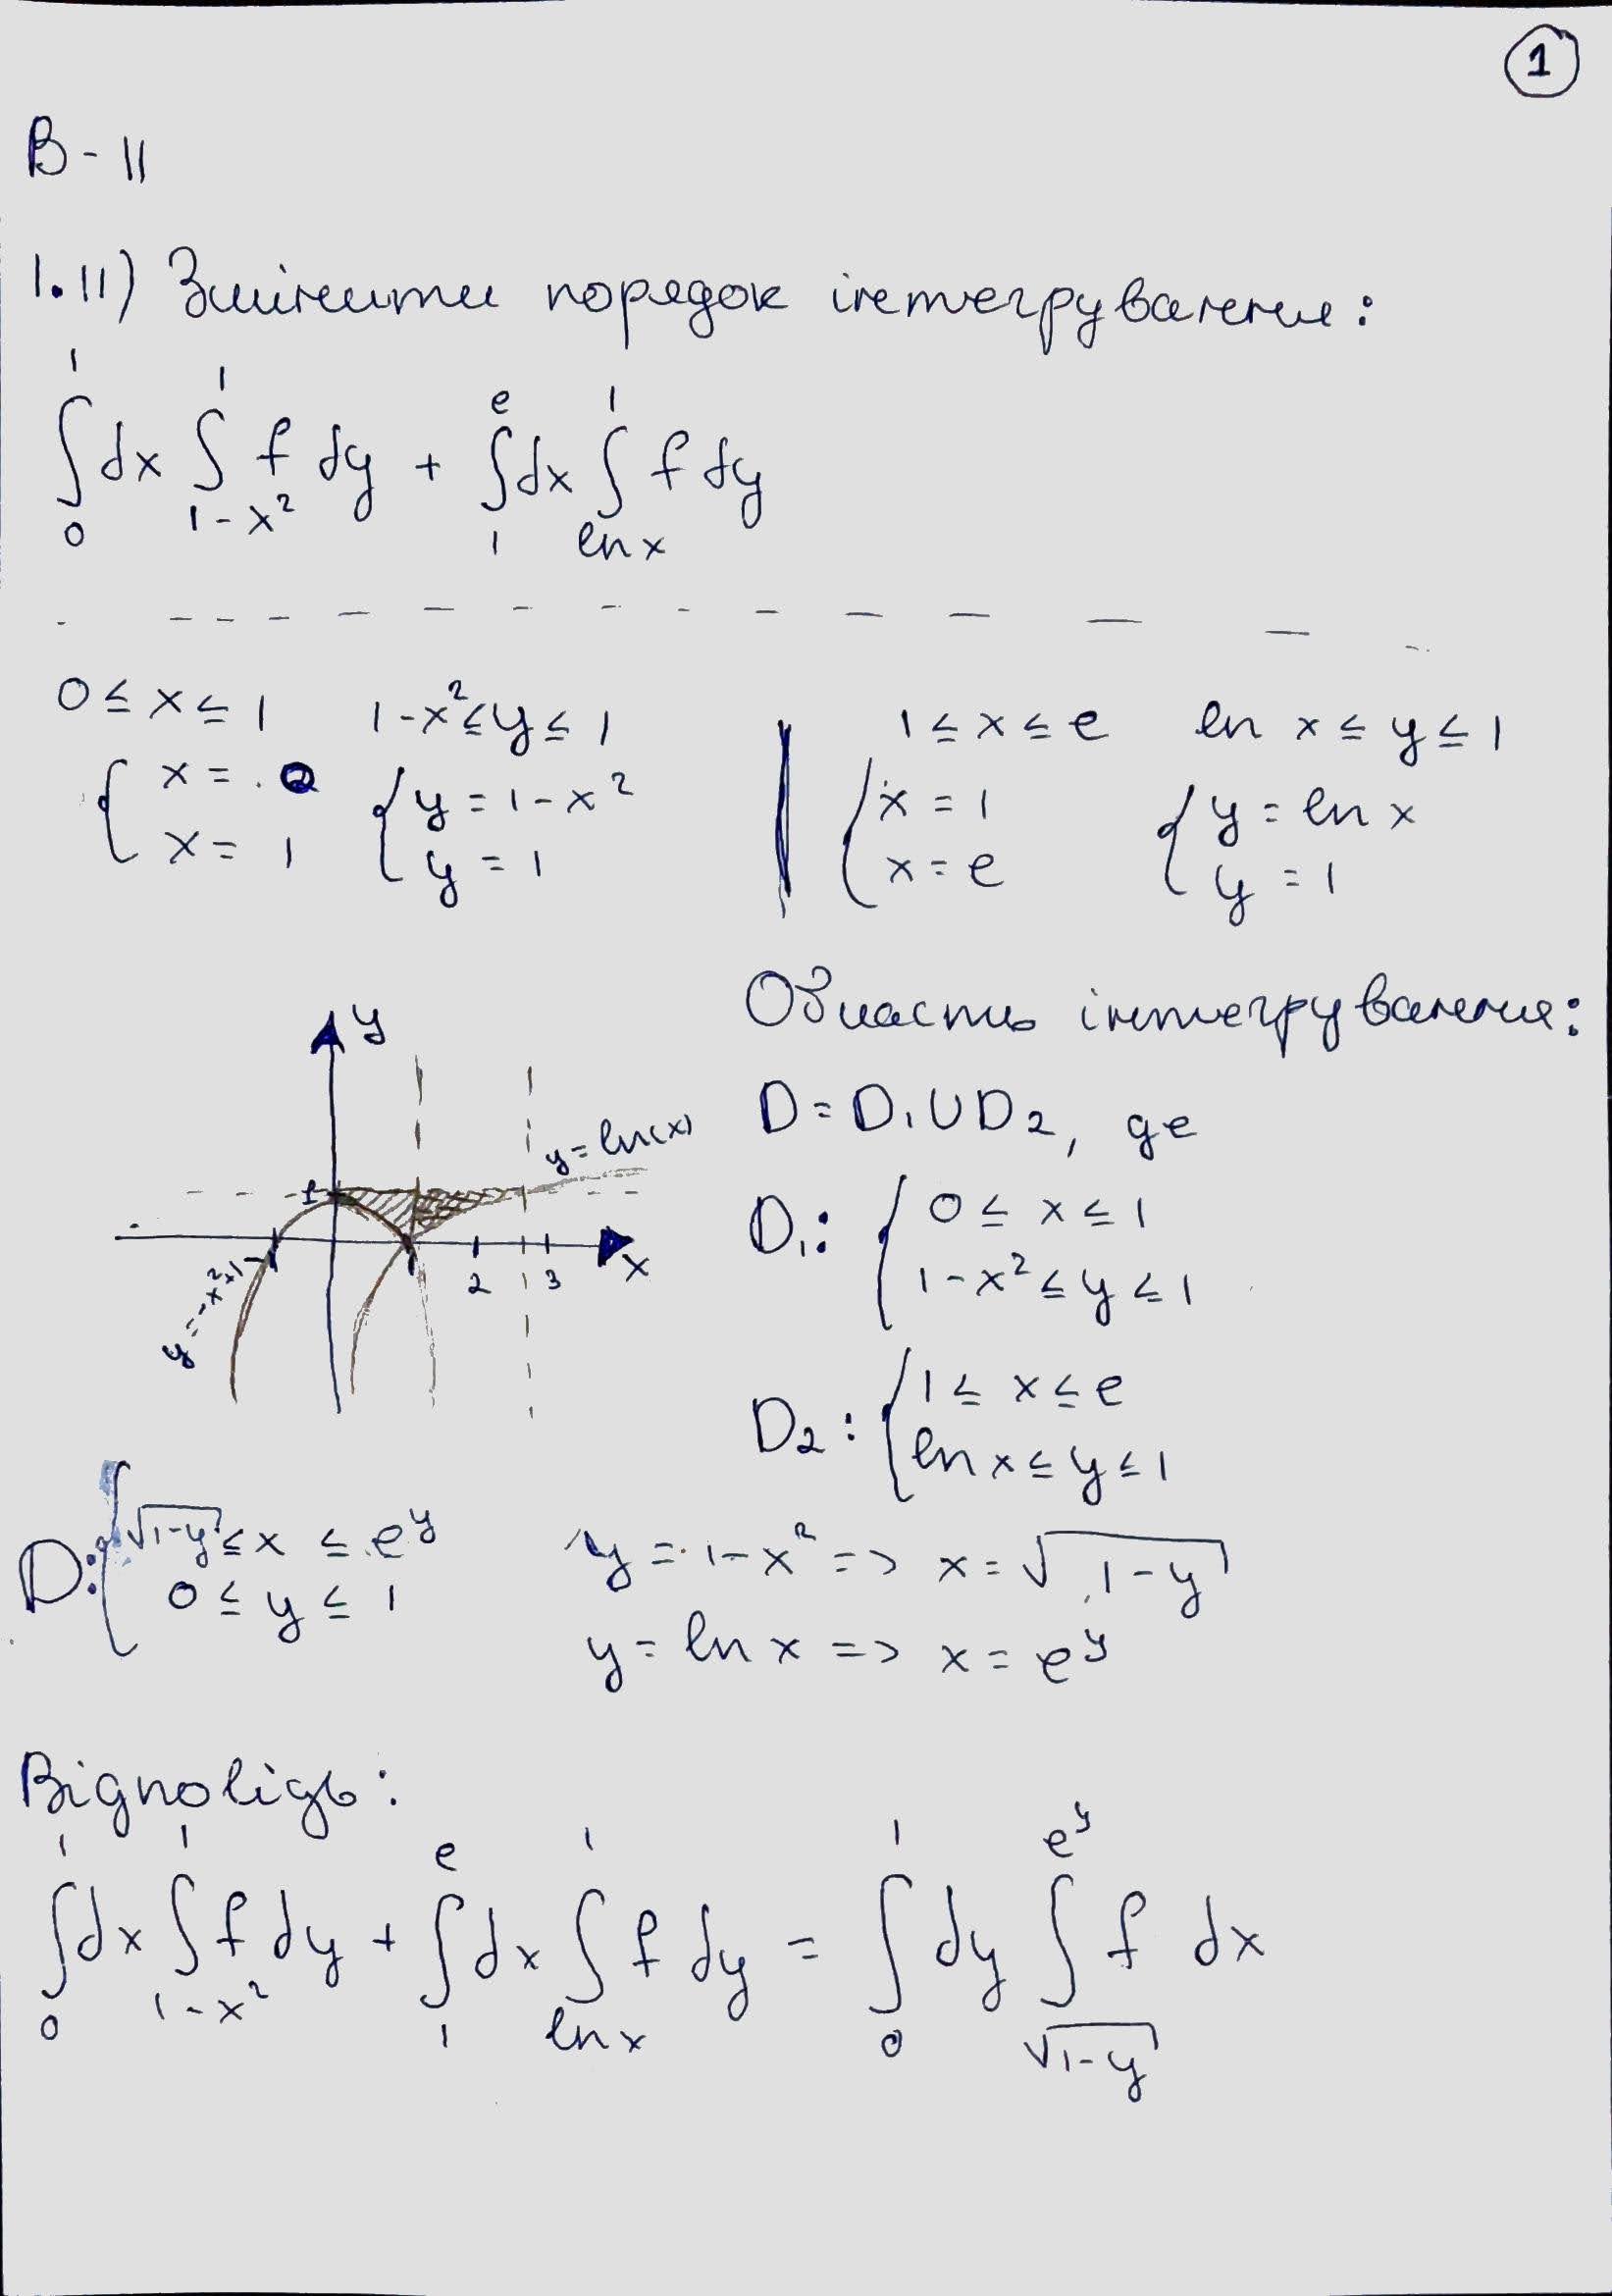 1
В-11
1.11) Змінити порядок інтегрування:
∫₀¹ dx ∫₁₋ₓ²¹ f dy + ∫₁ᵉ dx ∫ₗₙ ₓ¹ f dy
0 ≤ x ≤ 1 1-x² ≤ y ≤ 1 | 1 ≤ x ≤ e ln x ≤ y ≤ 1
{ x = 0 { y = 1-x² { x = 1 { y = ln x
x = 1 y = 1 x = e y = 1
Область інтегрування:
D = D₁ ∪ D₂, де
D₁: { 0 ≤ x ≤ 1
1-x² ≤ y ≤ 1
D₂: { 1 ≤ x ≤ e
ln x ≤ y ≤ 1
y
y = ln(x)
1
2 3 x
y = -x²+1
D: { √(1-y) ≤ x ≤ e^y y = 1-x² => x = √(1-y)
0 ≤ y ≤ 1 y = ln x => x = e^y
Відповідь:
∫₀¹ dx ∫₁₋ₓ²¹ f dy + ∫₁ᵉ dx ∫ₗₙ ₓ¹ f dy = ∫₀¹ dy ∫_√(1-y)^(e^y) f dx